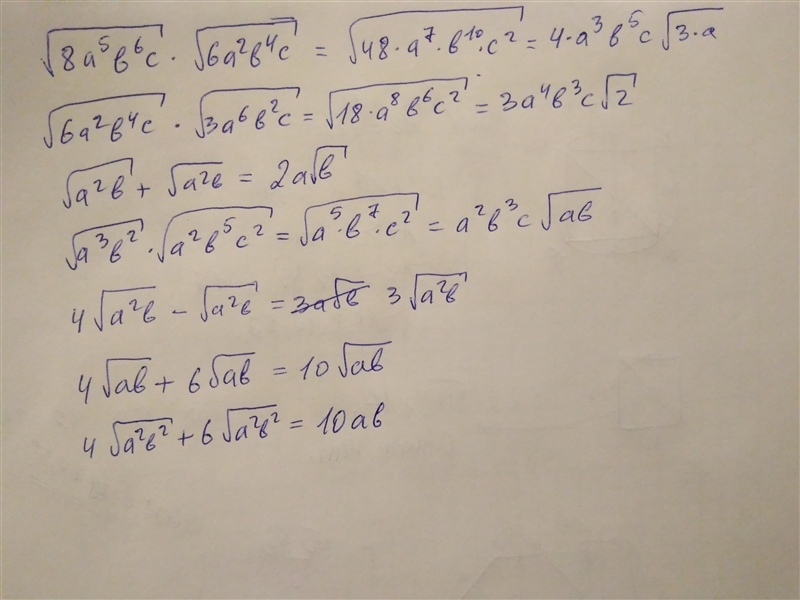 √(8a⁵b⁶c) · √(6a²b⁴c) = √(48·a⁷·b¹⁰·c²) = 4·a³b⁵c√(3·a)
√(6a²b⁴c) · √(3a⁶b²c) = √(18·a⁸b⁶c²) = 3a⁴b³c√2
√(a²b) + √(a²b) = 2a√b
√(a³b²) · √(a²b⁵c²) = √(a⁵·b⁷·c²) = a²b³c√(ab)
4√(a²b) − √(a²b) = 3a√b 3√(a²b)
4√(ab) + 6√(ab) = 10√(ab)
4√(a²b²) + 6√(a²b²) = 10ab